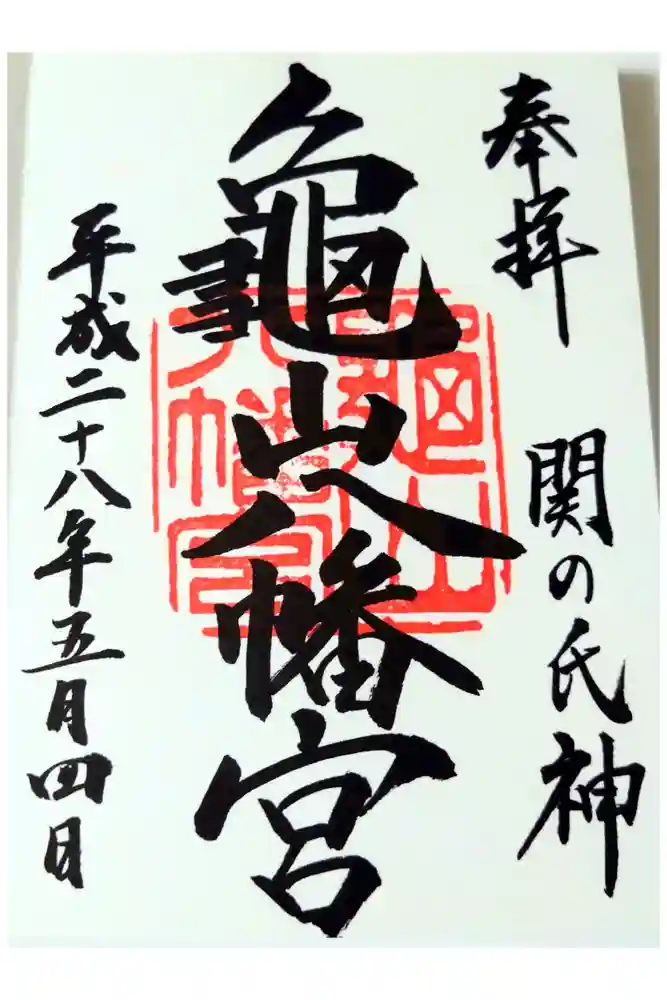 奉拝
関の氏神
龜山八幡宮
龜山八幡宮
平成二十八年五月四日